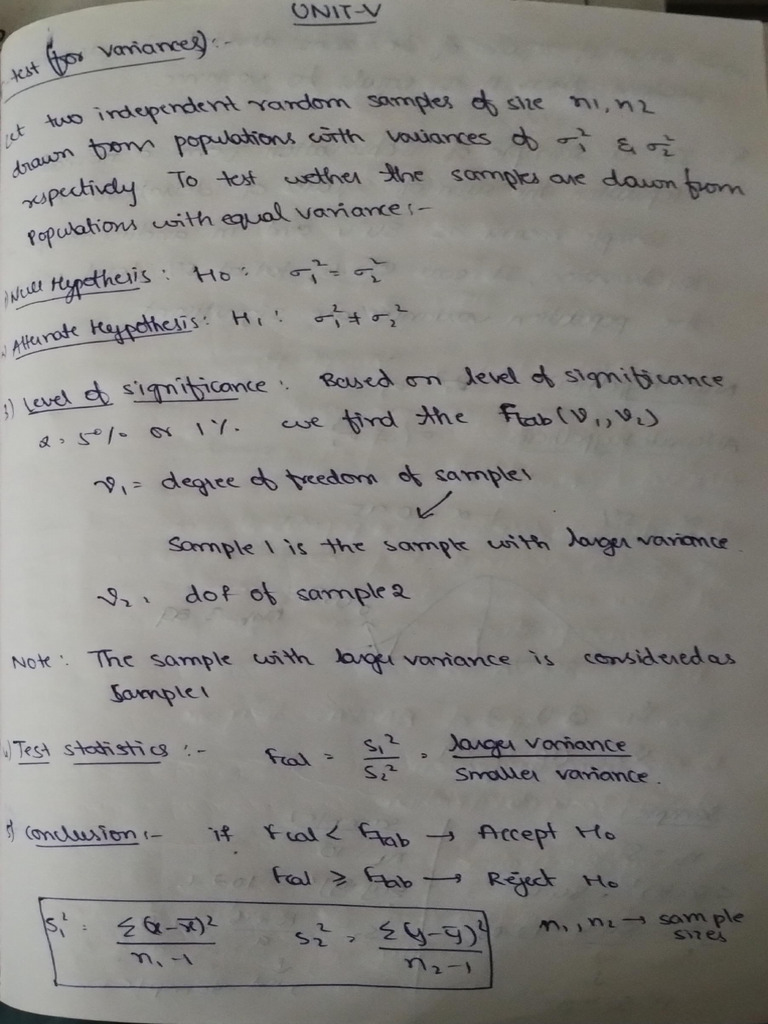 UNIT-V
test (for variances):-
Let two independent random samples of size n1, n2
drawn from populations with variances of σ₁² & σ₂²
respectively To test wether the samples are dawn from
populations with equal variance:-
1) Null Hypothesis: H0: σ₁² = σ₂²
2) Alternate Hypothesis: H1: σ₁² ≠ σ₂²
3) Level of significance: Based on level of significance
α = 5% or 1% we find the Ftab(ν₁, ν₂)
ν₁ = degree of freedom of sample1
↙
Sample 1 is the sample with larger variance.
ν₂ = dof of sample2
Note: The sample with larger variance is considered as
Sample1
4) Test statistics:- Fcal = S₁²/S₂² = larger variance/smaller variance.
5) Conclusion:- if Fcal < Ftab → Accept H0
Fcal ≥ Ftab → Reject H0
S₁² = Σ(x-x̄)²/n₁-1 S₂² = Σ(y-ȳ)²/n₂-1 n₁, n₂ → sample
sizes